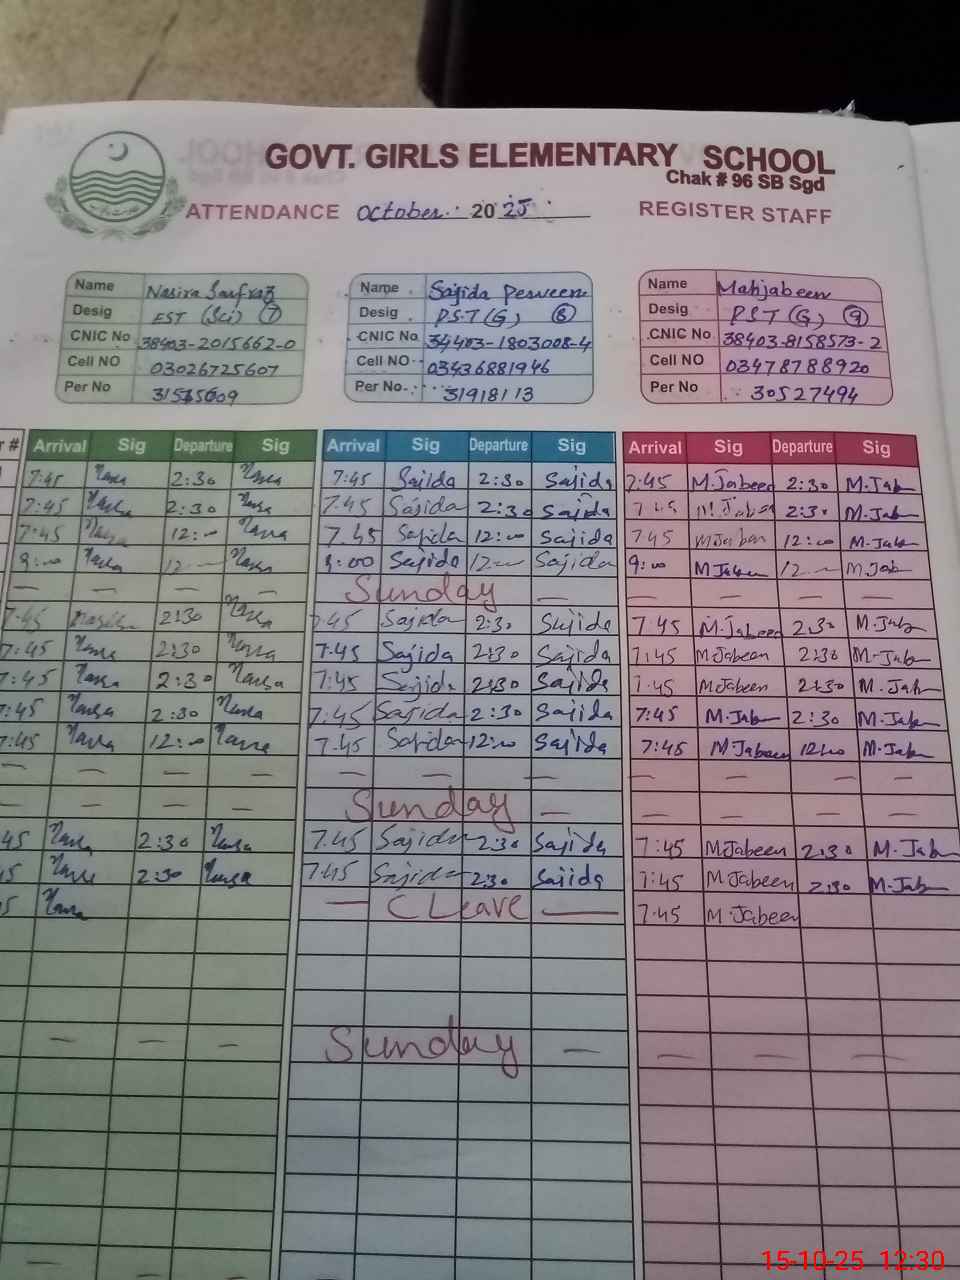 GOVT. GIRLS ELEMENTARY SCHOOL
Chak # 96 SB Sgd
ATTENDANCE October 2025 REGISTER STAFF
Name Nasira Sarfraz Name Sajida Perveen Name Mahjabeen
Desig EST (Sci) 7 Desig P.S.T (G) 8 Desig P.S.T (G) 9
CNIC No 38403-2015662-0 CNIC No 34403-1803008-4 CNIC No 38403-8158573-2
Cell NO 03026725607 Cell NO 03436881946 Cell NO 03478788920
Per No Per No 31918113 Per No 30527494
r # Arrival Sig Departure Sig Arrival Sig Departure Sig Arrival Sig Departure Sig
7:45 2:30 7:45 Sajida 2:30 Sajida 7:45 M.Jabeen 2:30 M.Jab
7:45 2:30 7.45 Sajida 2:30 Sajida 7.45 2:30 M.Jab
7:45 12:00 7.45 Sajida 12:00 Sajida 7.45 M Jaben 12:00 M.Jab
12 Sajida 12 Sajida 9:00 M Jaben 12 M Jab
— — — — Sunday — — — — —
7.45 2:30 7.45 Sajida 2:30 Sajida 7.45 M.Jabeen 2:30 M.Jab
7:45 2:30 7:45 Sajida 2:30 Sajida 7:45 M Jabeen 2:30 M-Jab
7:45 2:30 7:45 Sajida 2:30 Sajida 7.45 M Jabeen 2:30 M.Jab
7:45 2:30 7:45 Sajida 2:30 Sajida 7:45 M.Jab 2:30 M.Jab
7:45 12:00 7.45 Sajida 12:00 Sajida 7:45 M Jabeen 12:00 M.Jab
— — — — — — — — — — —
— — — — Sunday — — — — —
45 2:30 7.45 Sajida 2:30 Sajida 7:45 M Jabeen 2:30 M.Jab
5 2:30 7:45 Sajida 2:30 Sajida 7:45 M Jabeen 2:30 M.Jab
5 — C Leave — 7.45 M.Jabeen
— — — Sunday — — — —
—
15-10-25 12:30